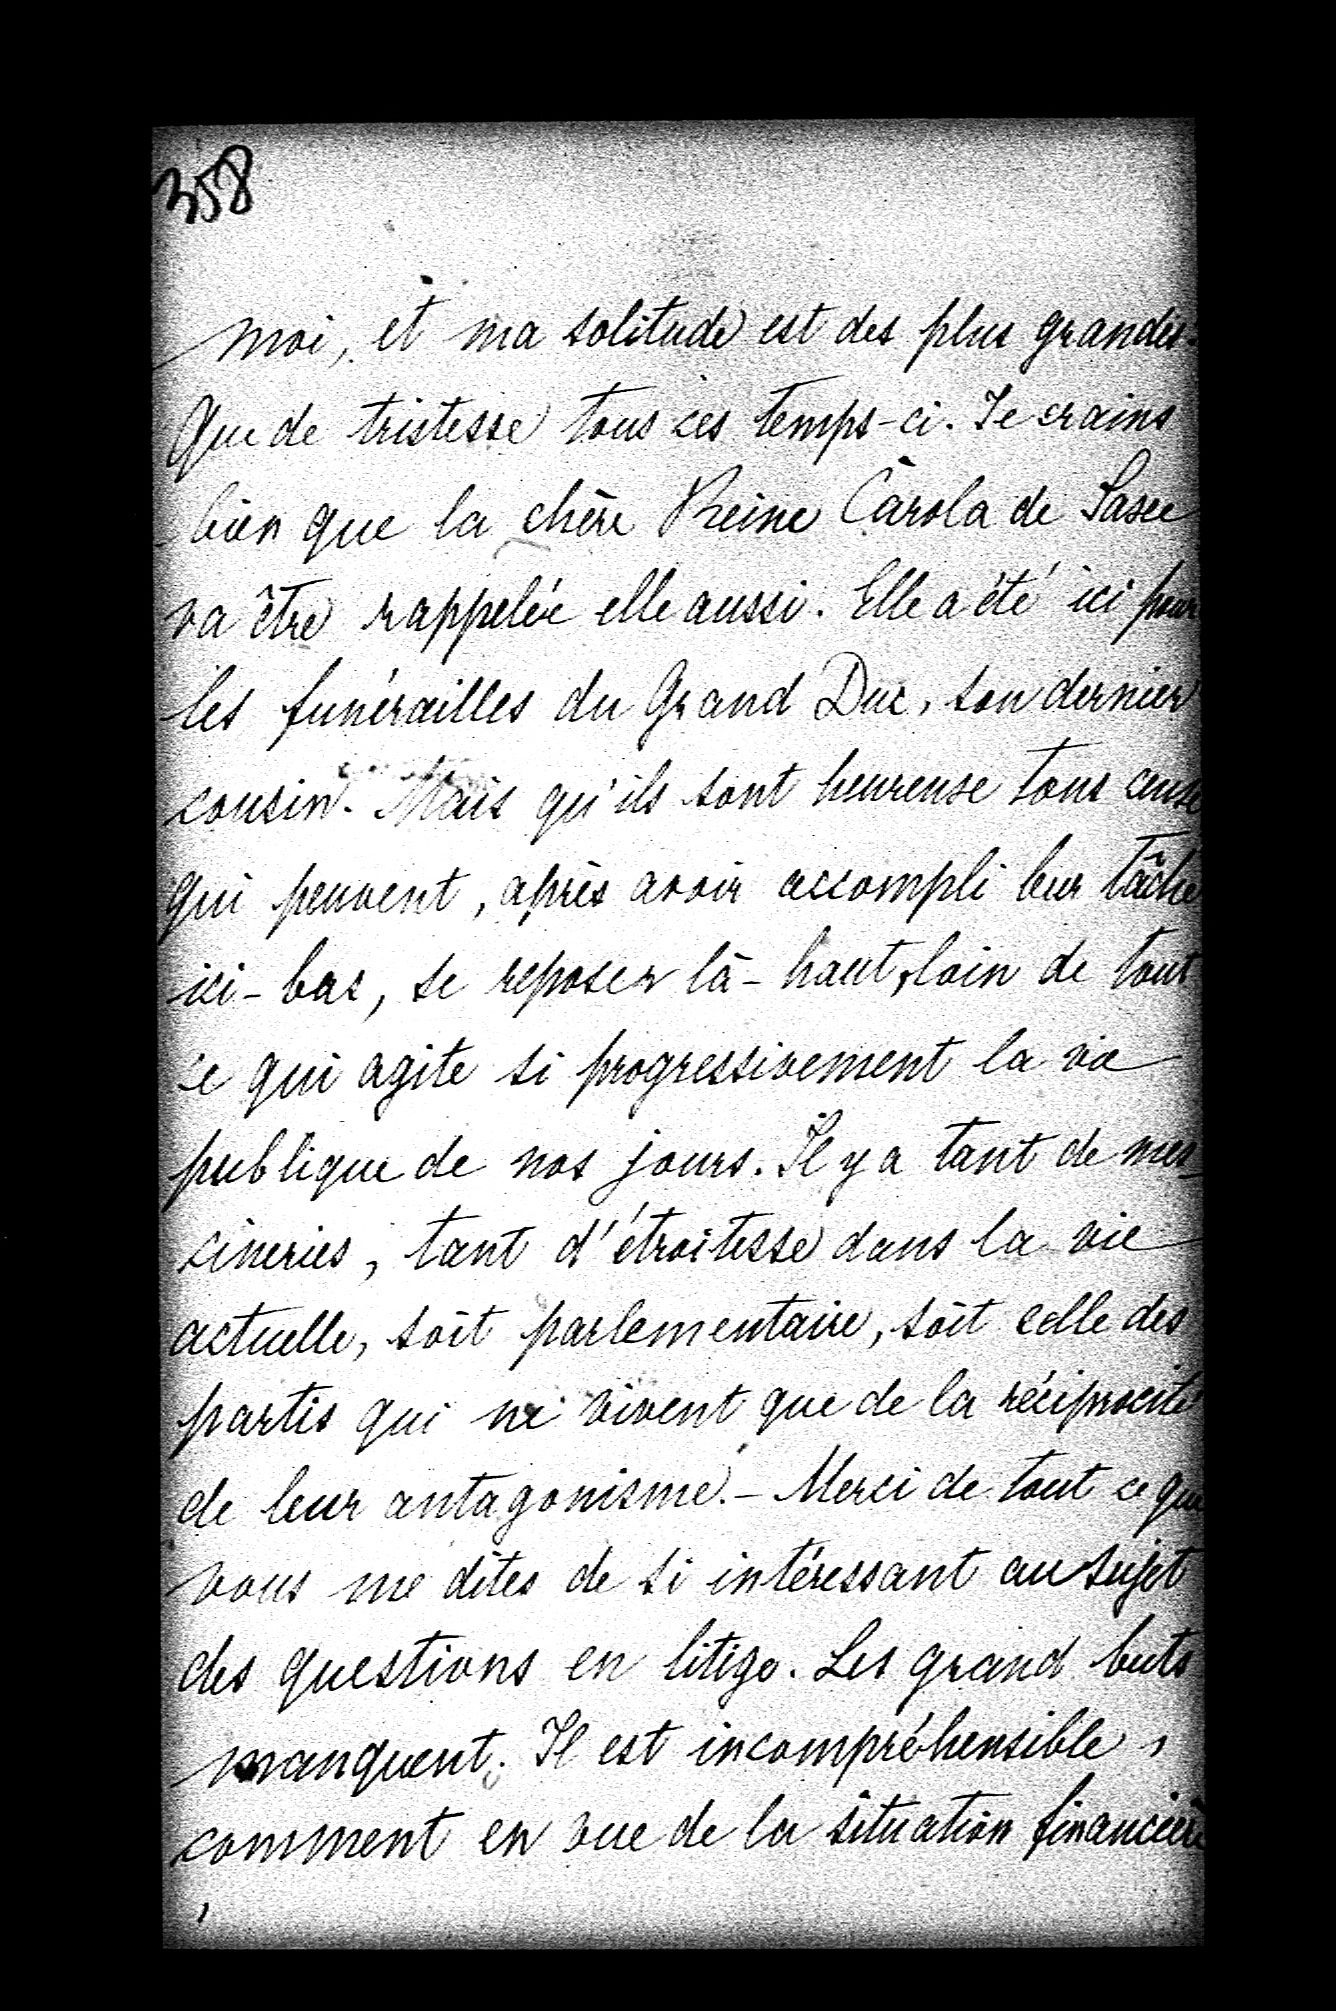 358
moi, et ma solitude est des plus grandes.
Que de tristesse tous ces temps-ci. Je crains
bien que la chère Reine Carola de Saxe
va être rappelée elle aussi. Elle a été ici pour
les funérailles du Grand Duc, son dernier
cousin. Mais qu'ils sont heureuse tous ceux
qui peuvent, après avoir accompli leur tâche
ici-bas, se reposer là-haut, loin de tout
ce qui agite si progressivement la vie
publique de nos jours. Il y a tant de mes-
cineries, tant d'étroitesse dans la vie
actuelle, soit parlementaire, soit celle des
partis qui ne vivent que de la réciprocité
de leur antagonisme. - Merci de tout ce que
vous me dites de si intéressant au sujet
des questions en litige. Les grand buts
manquent. Il est incompréhensible,
comment en vue de la situation financière